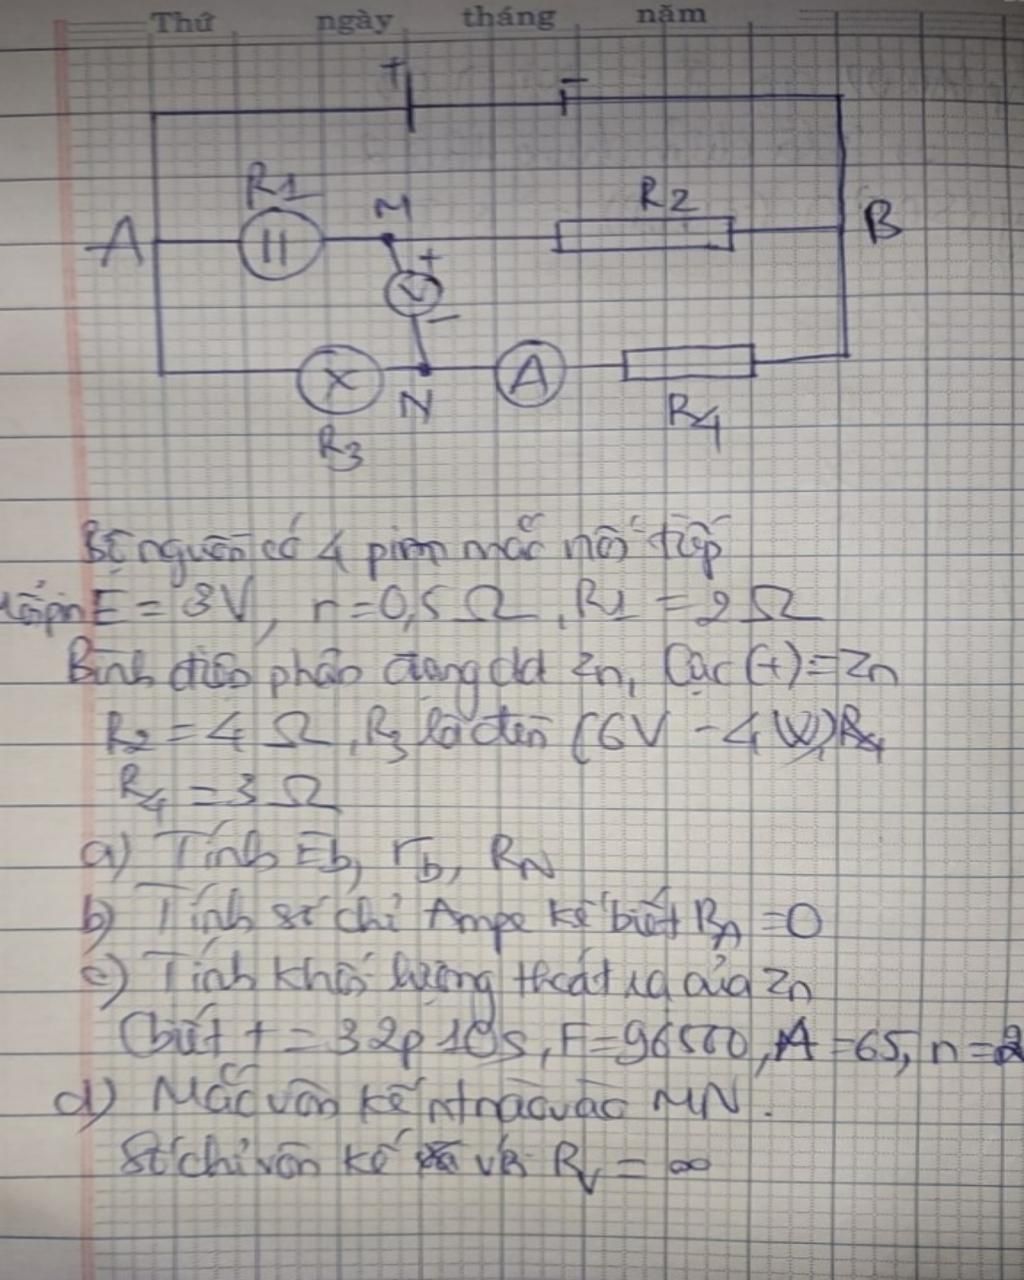 Thứ ngày tháng năm
+ -
R1
M
R2
A
B
V +
-
X
N
A
R3
R4
Bộ nguồn có 4 pin mắc nối tiếp
mỗi pin E = 3V, r = 0,5 Ω, R1 = 2 Ω
Bình điện phân đựng dd Zn, Cực (+) = Zn
R2 = 4 Ω, R3 là đèn (6V - 4W) R4
R4 = 3 Ω
a) Tính Eb, rb, RN
b) Tính số chỉ Ampe kế biết RA = 0
c) Tính khối lượng thoát ra của Zn
(biết t = 32p 10s, F = 96500, A = 65, n = 2
d) Mắc vôn kế ntn vào MN.
Số chỉ vôn kế và RV = ∞